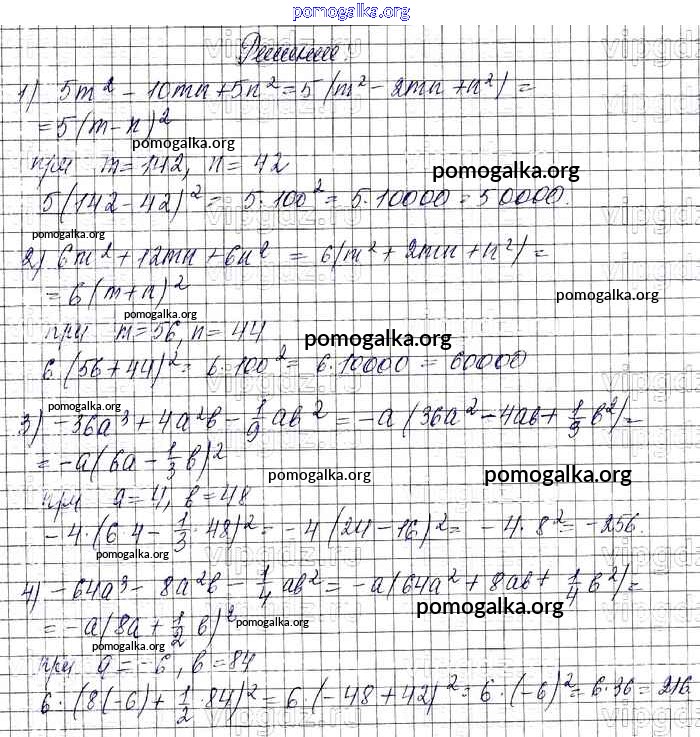 pomogalka.org
Решение.
1) 5m² - 10mn + 5n² = 5(m² - 2mn + n²) =
= 5(m - n)²
pomogalka.org
при m = 142, n = 42
pomogalka.org
5(142 - 42)² = 5·100² = 5·10000 = 50000.
pomogalka.org
2) 6m² + 12mn + 6n² = 6(m² + 2mn + n²) =
= 6(m + n)²
pomogalka.org
pomogalka.org
при m = 56, n = 44
pomogalka.org
6·(56 + 44)² = 6·100² = 6·10000 = 60000
pomogalka.org
3) -36a³ + 4a²b - 1/9 ab² = -a(36a² - 4ab + 1/9 b²) =
= -a(6a - 1/3 b)²
pomogalka.org
pomogalka.org
при a = 4, b = 48
-4·(6·4 - 1/3·48)² = -4(24 - 16)² = -4·8² = -256.
pomogalka.org
4) -64a³ - 8a²b - 1/4 ab² = -a(64a² + 8ab + 1/4 b²) =
pomogalka.org
= -a(8a + 1/2 b)²
pomogalka.org
pomogalka.org
при a = -6, b = 84
6·(8(-6) + 1/2·84)² = 6·(-48 + 42)² = 6·(-6)² = 6·36 = 216